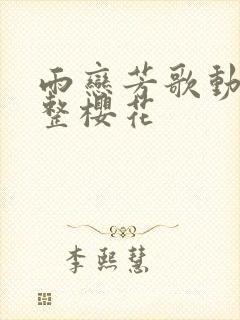 雨戀芳歌動
整櫻花
李熙慧